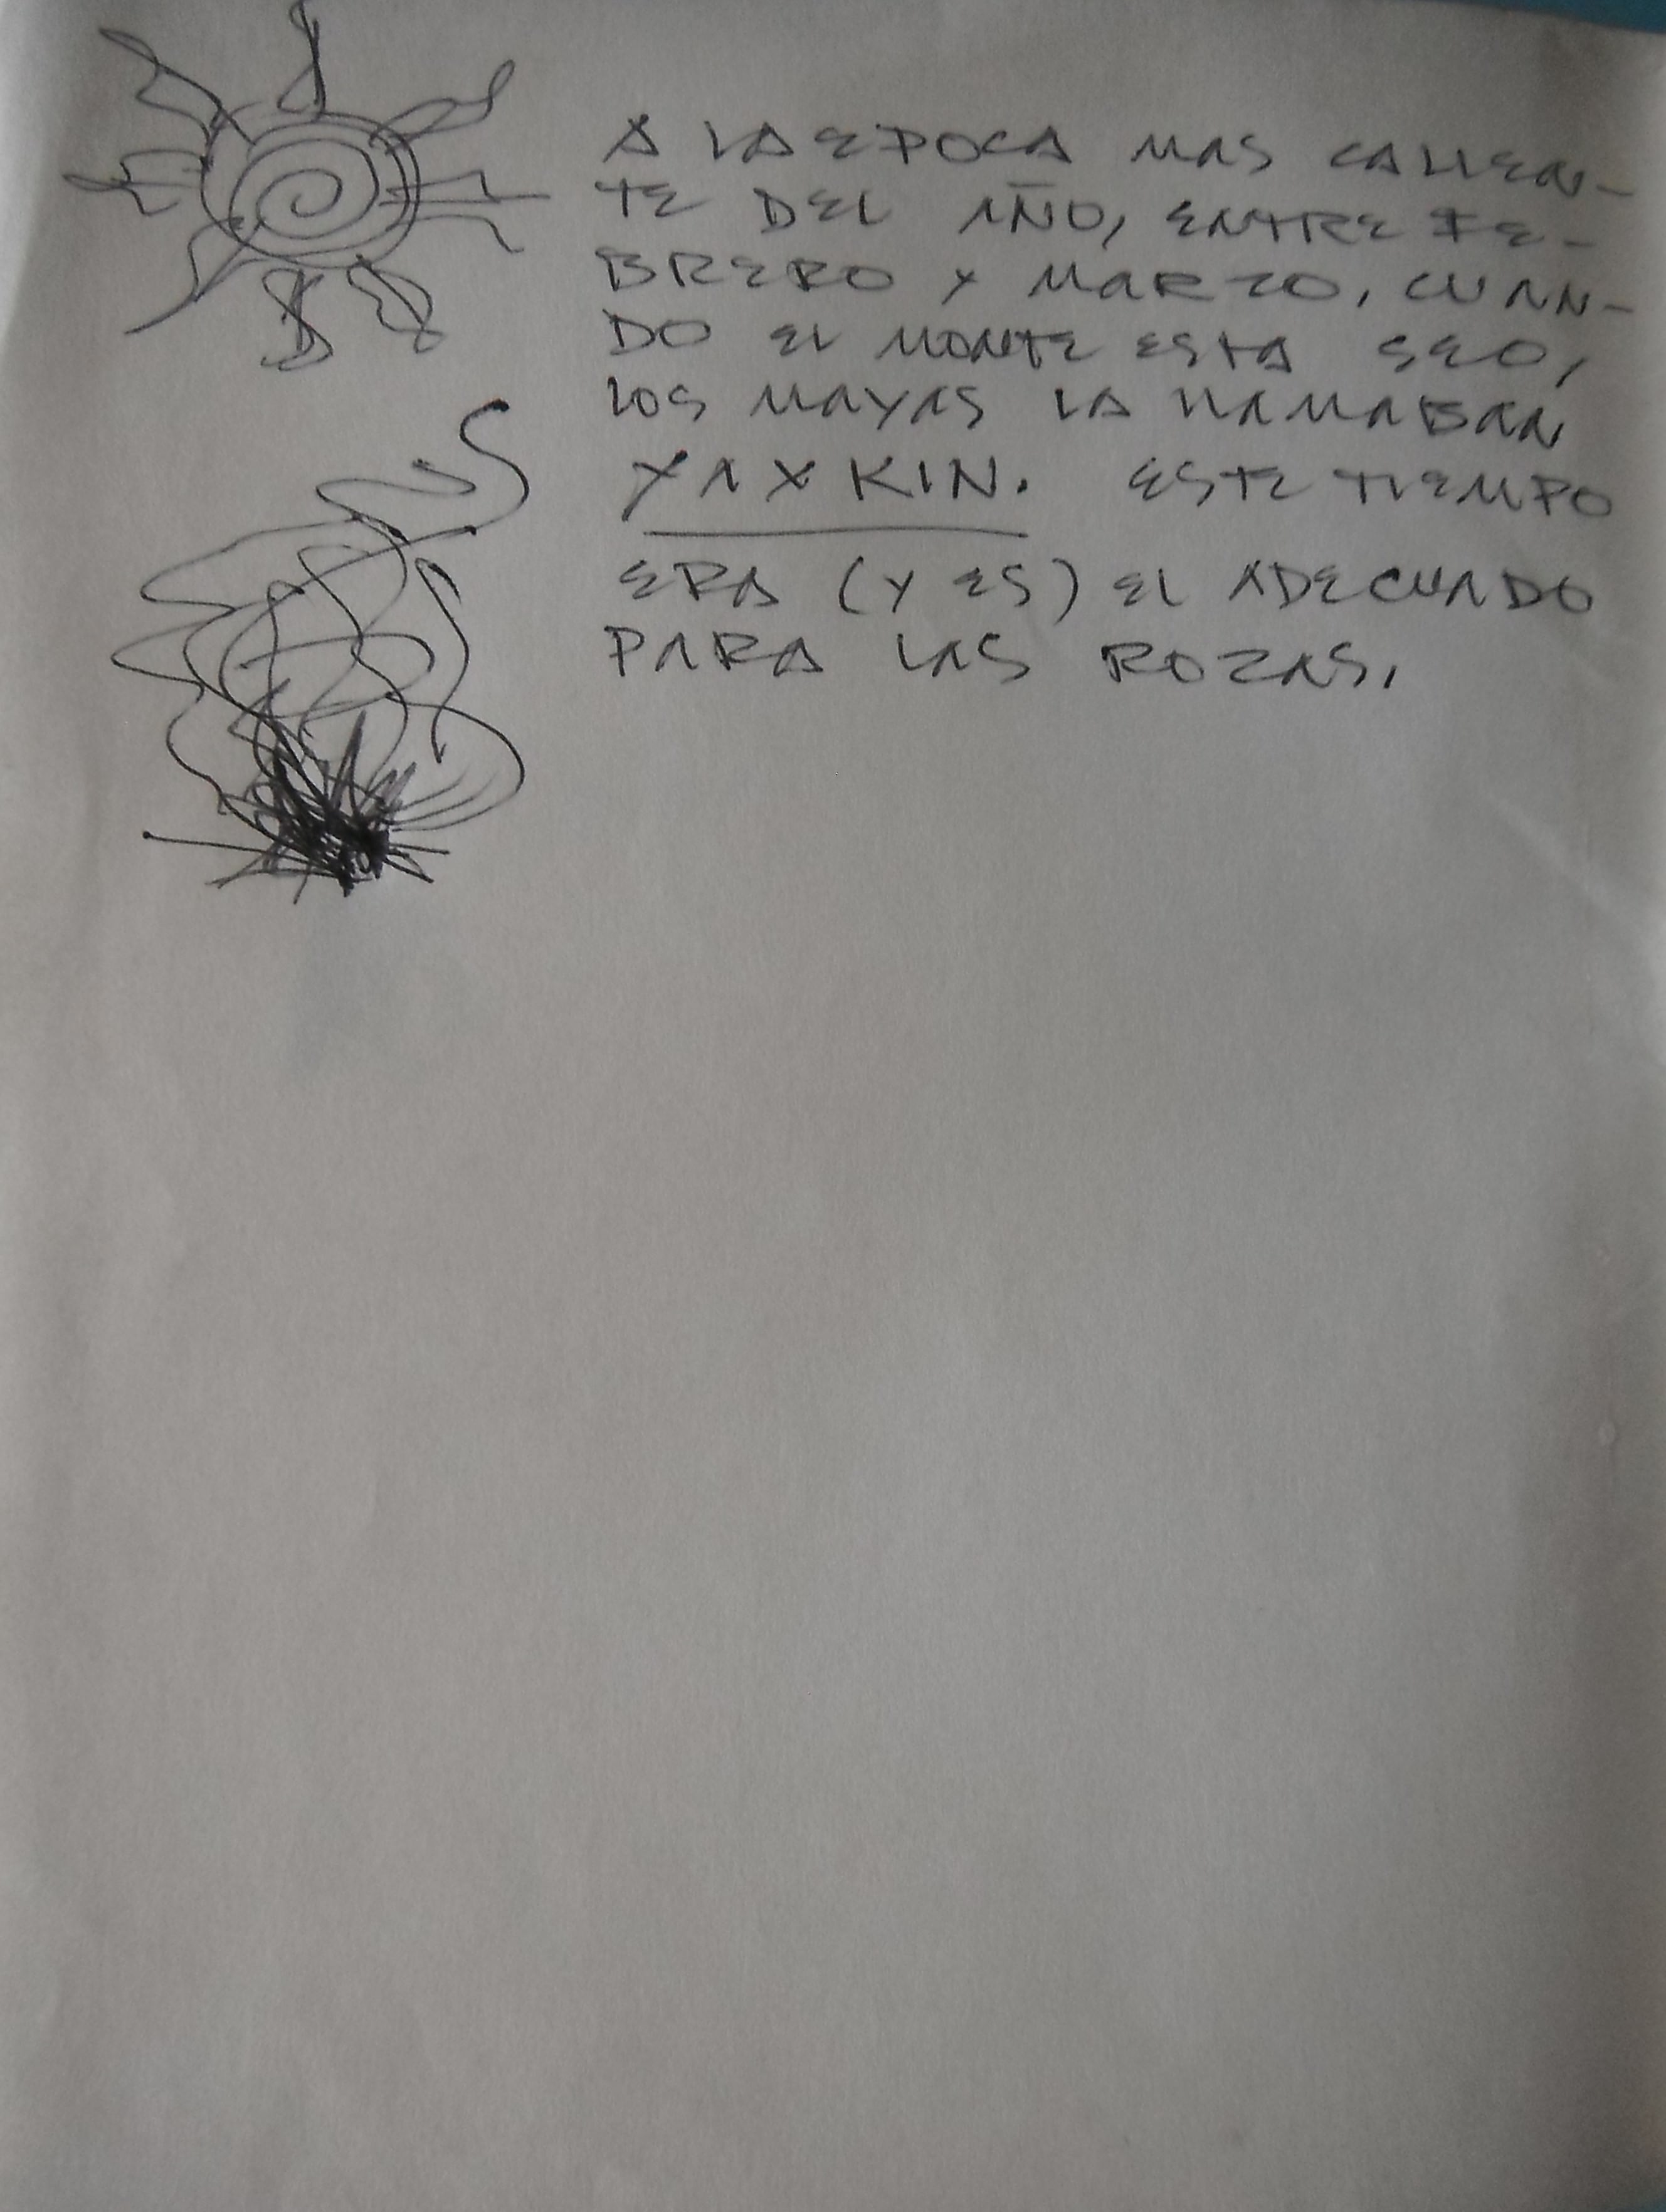 A LA EPOCA MAS CALIEN-
TE DEL AÑO, ENTRE FE-
BRERO Y MARZO, CUAN-
DO EL MONTE ESTA SEO,
LOS MAYAS LA LLAMABAN
YAXKIN. ESTE TIEMPO
ERA (Y ES) EL ADECUADO
PARA LAS ROZAS.